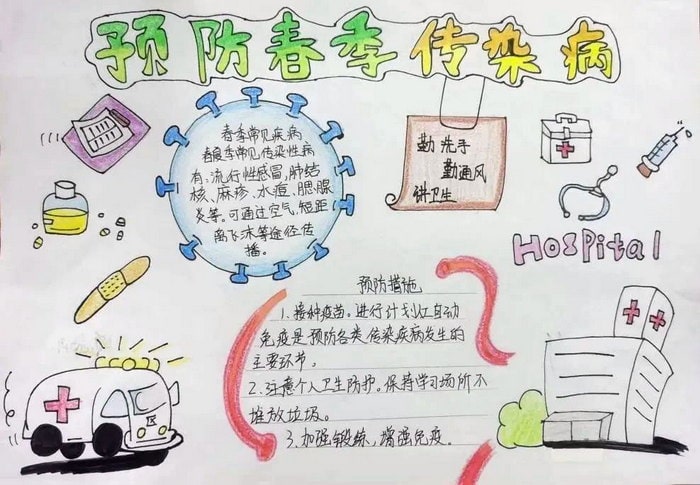 预防春季传染病
春季常见疾病
春夏季常见传染性病
有:流行性感冒,肺结
核、麻疹、水痘、腮腺
炎等。可通过空气,短距
离飞沫等途径传
播。
勤洗手
勤通风
讲卫生
Hospital
预防措施
1.接种疫苗。进行计划以自动
免疫是预防各类传染疾病发生的
主要环节。
2.注意个人卫生防护。保持学习场所不
堆放垃圾。
3.加强锻炼,增强免疫。